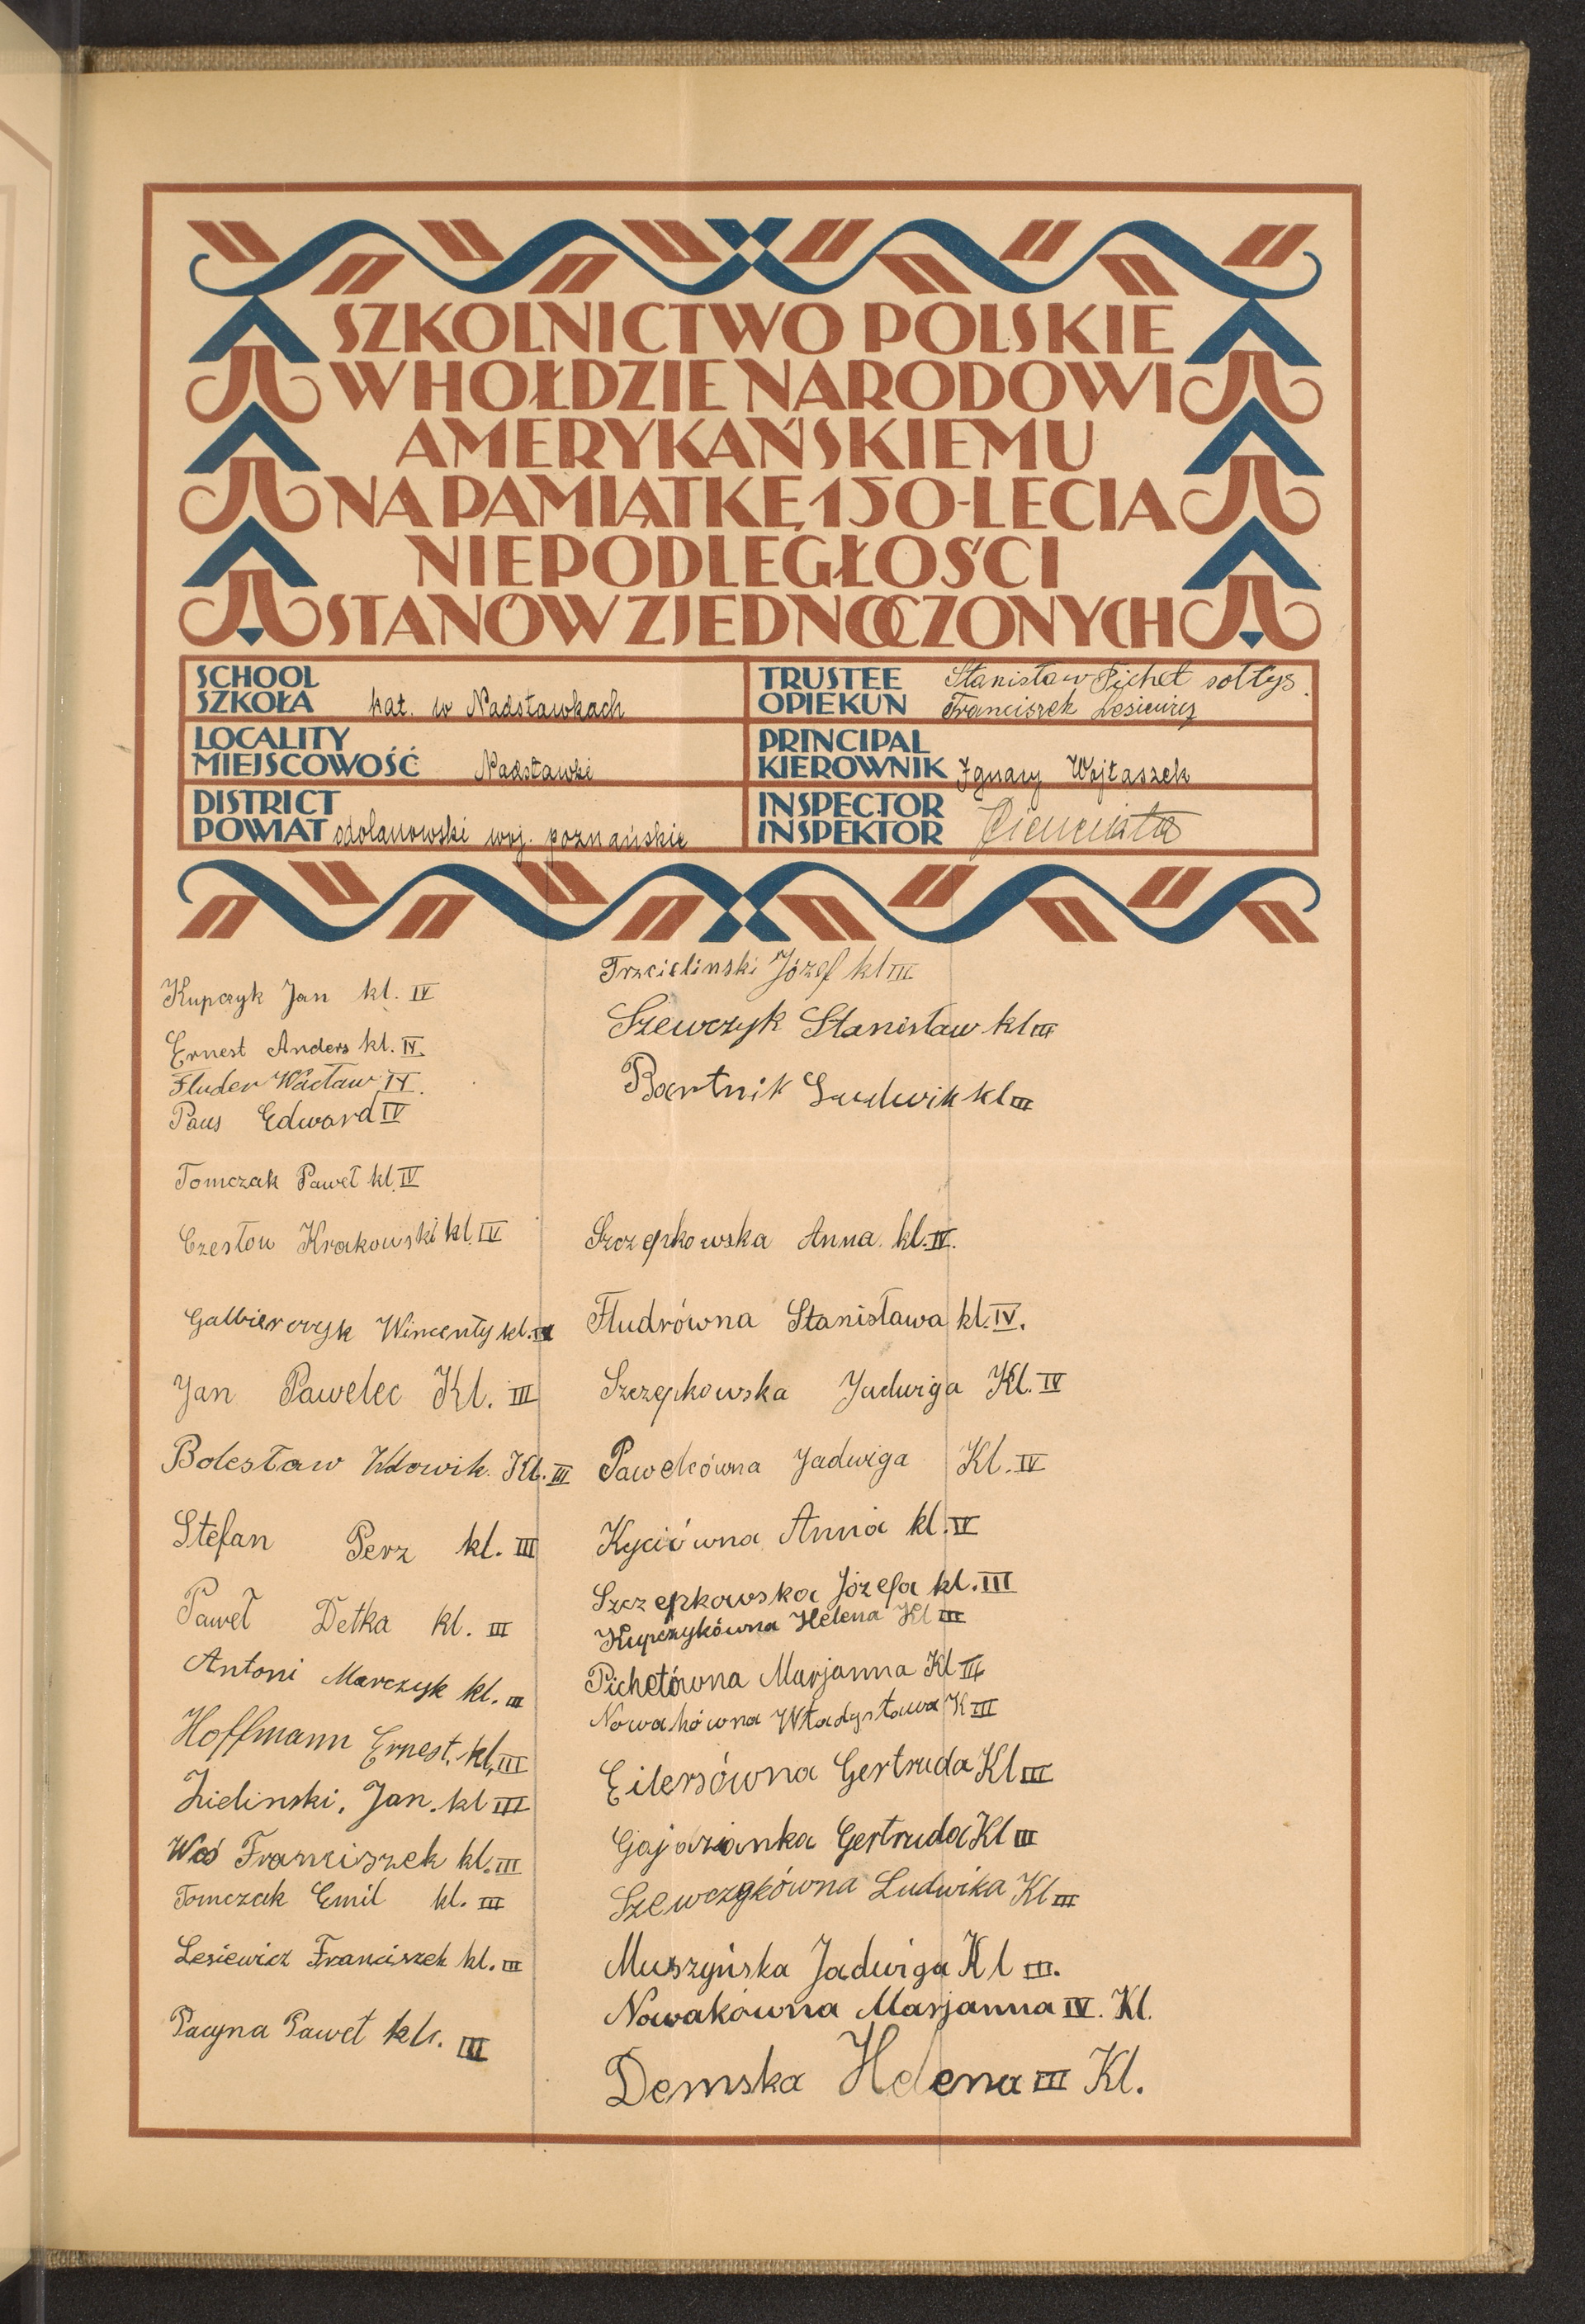 SZKOLNICTWO POLSKIE
W HOŁDZIE NARODOWI
AMERYKAŃSKIEMU
NA PAMIĄTKĘ 150-LECIA
NIEPODLEGŁOŚCI
STANÓW ZJEDNOCZONYCH
SCHOOL
SZKOŁA kat. w Nadstawkach
LOCALITY
MIEJSCOWOŚĆ Nadstawki
DISTRICT
POWIAT odolanowski woj. poznańskie
TRUSTEE Stanisław Pichet sołtys.
OPIEKUN Franciszek Lesiewicz
PRINCIPAL
KIEROWNIK Ignacy Wojtaszek
INSPECTOR
INSPEKTOR
Kupczyk Jan kl. IV
Ernest Anders kl. IV.
Fluder Wacław IV.
Paus Edward IV
Tomczak Paweł kl. IV
Czesłow Krakowski kl. IV
Galbierczyk Wincenty kl.
Jan Pawelec Kl. III
Bolesław Wdowik. Kl. III
Stefan Perz kl. III
Paweł Detka kl. III
Antoni Marczyk kl. III
Hoffmann Ernest. kl. III
Zielinski, Jan. kl III
Woś Franciszek kl. III
Tomczak Emil kl. III
Lesiewicz Franciszek kl. III
Pacyna Paweł kls. III
Trzcielinski Józef kl III
Szewczyk Stanisław kl III
Bartnik Ludwik kl III
Szczepkowska Anna. kl. IV.
Fludrówna Stanisława kl. IV.
Szczepkowska Jadwiga Kl. IV
Pawelcówna Jadwiga Kl. IV
Kyciówna Anna kl. IV
Szczepkowska Józefa kl. III
Kupczykówna Helena Kl III
Pichetówna Marjanna Kl III
Nowakówna Władysława K III
Eilersówna Gertruda Kl III
Gajdzianka Gertruda Kl III
Szewczykówna Ludwika Kl III
Muszyńska Jadwiga Kl III.
Nowakówna Marjanna IV. Kl.
Demska Helena III Kl.